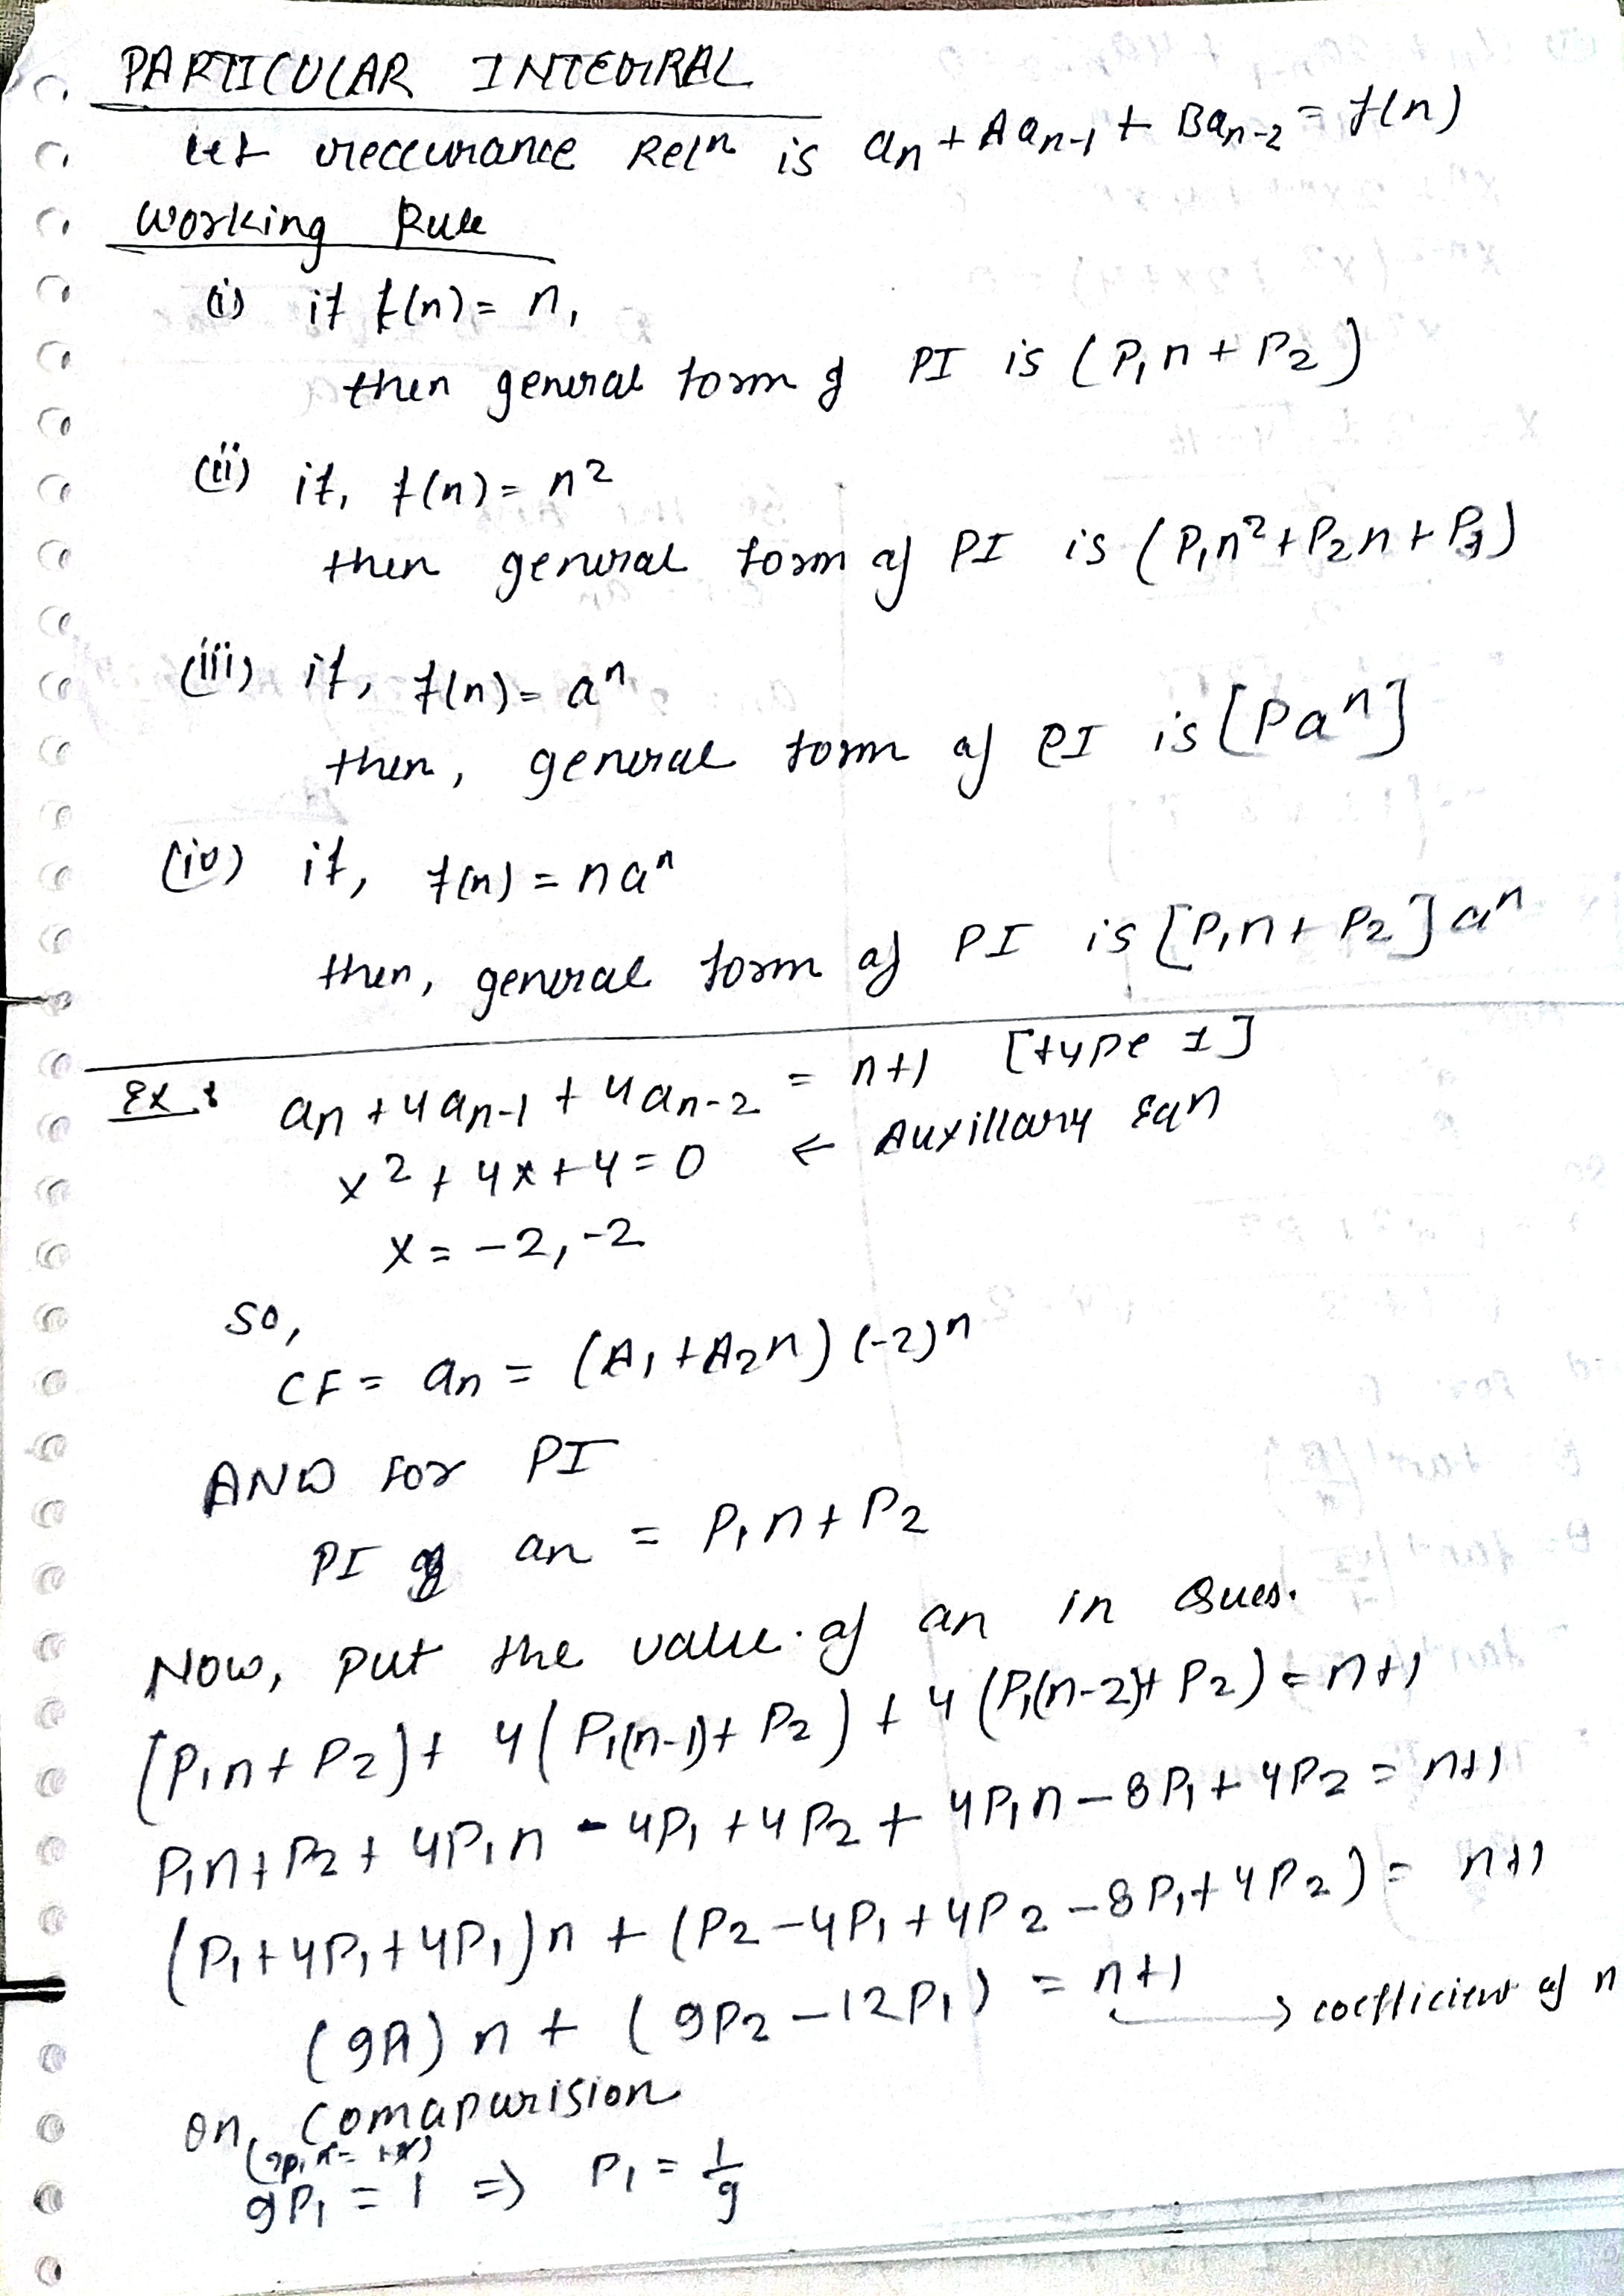 PARTICULAR INTEGRAL
Let reccurance Relⁿ is aₙ + Aaₙ₋₁ + Baₙ₋₂ = f(n)
Working Rule
(i) if f(n) = n,
then general form of PI is (P₁n + P₂)
(ii) if, f(n) = n²
then general form of PI is (P₁n² + P₂n + P₃)
(iii) if, f(n) = aⁿ
then, general form of PI is [Paⁿ]
(iv) if, f(n) = naⁿ
then, general form of PI is [P₁n + P₂] aⁿ
Ex: aₙ + 4aₙ₋₁ + 4aₙ₋₂ = n+1 [type 1]
x² + 4x + 4 = 0 ← Auxillary Eqⁿ
x = -2, -2
So,
CF = aₙ = (A₁ + A₂n) (-2)ⁿ
AND for PI
PI of an = P₁n + P₂
Now, put the value of an in Ques.
[P₁n + P₂] + 4(P₁(n-1) + P₂) + 4(P₁(n-2) + P₂) = n+1
P₁n + P₂ + 4P₁n - 4P₁ + 4P₂ + 4P₁n - 8P₁ + 4P₂ = n+1
(P₁ + 4P₁ + 4P₁)n + (P₂ - 4P₁ + 4P₂ - 8P₁ + 4P₂) = n+1
(9P₁)n + (9P₂ - 12P₁) = n+1 → coefficient of n
on comaparision
9P₁ = 1 ⇒ P₁ = 1/9